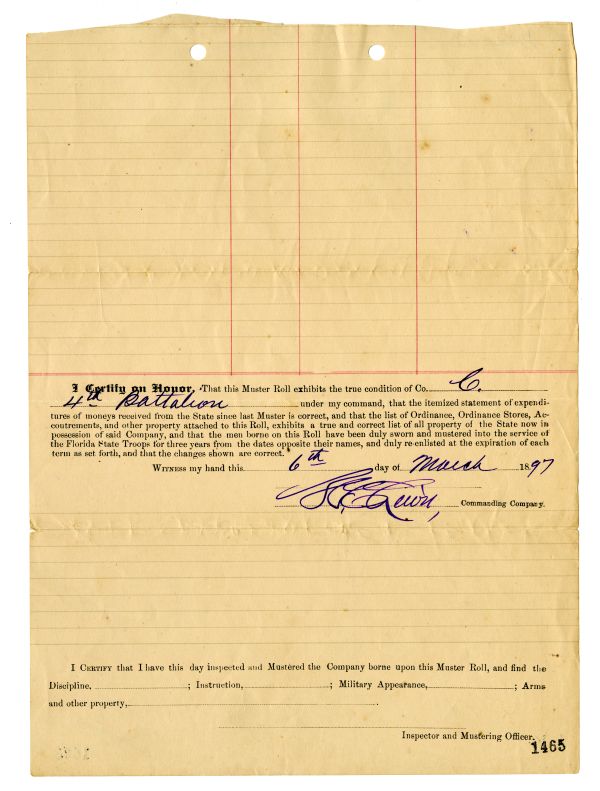 I Certify on Honor, That this Muster Roll exhibits the true condition of Co. C.
4th Battalion under my command, that the itemized statement of expendi-
tures of moneys received from the State since last Muster is correct, and that the list of Ordinance, Ordinance Stores, Ac-
coutrements, and other property attached to this Roll, exhibits a true and correct list of all property of the State now in
possession of said Company, and that the men borne on this Roll have been duly sworn and mustered into the service of
the Florida State Troops for three years from the dates opposite their names, and duly re-enlisted at the expiration of each
term as set forth, and that the changes shown are correct.
Witness my hand this 6th day of March 1897
Commanding Company.
I Certify that I have this day inspected and Mustered the Company borne upon this Muster Roll, and find the
Discipline, ; Instruction, ; Military Appearance, ; Arms
and other property,
Inspector and Mustering Officer.
1465